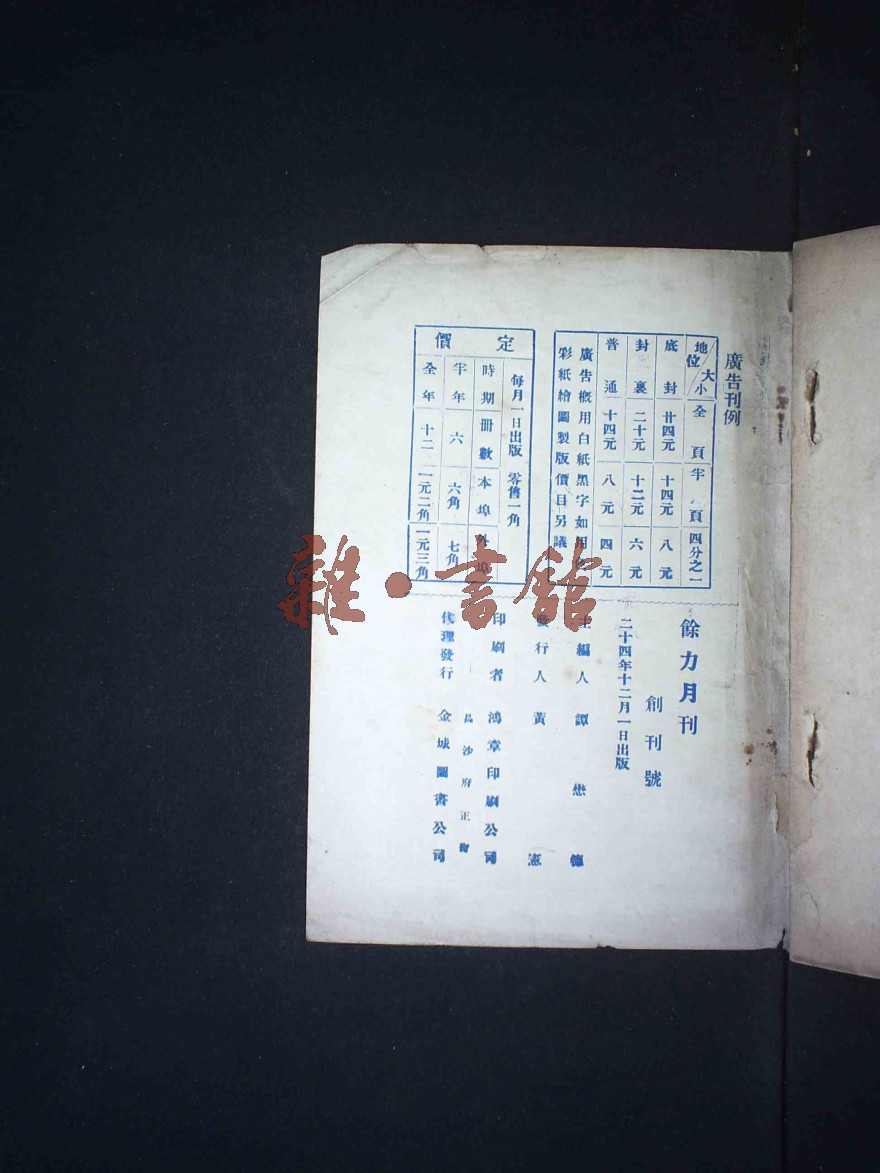 廣告刊例
地位 大小 全頁 半頁 四分之一
底封 廿四元 十四元 八元
封裏 二十元 十二元 六元
普通 十四元 八元 四元
廣告概用白紙黑字如用
彩紙繪圖製版價目另議
定價
每月一日出版 零售一角
時期 冊數 本埠 外埠
半年 六 六角 七角
全年 十二 一元二角 一元三角
餘力月刊
創刊號
二十四年十二月一日出版
主編人 譚懋德
發行人 黃憲
印刷者 鴻章印刷公司
長沙府正街
代理發行 金城圖書公司
雜·書館